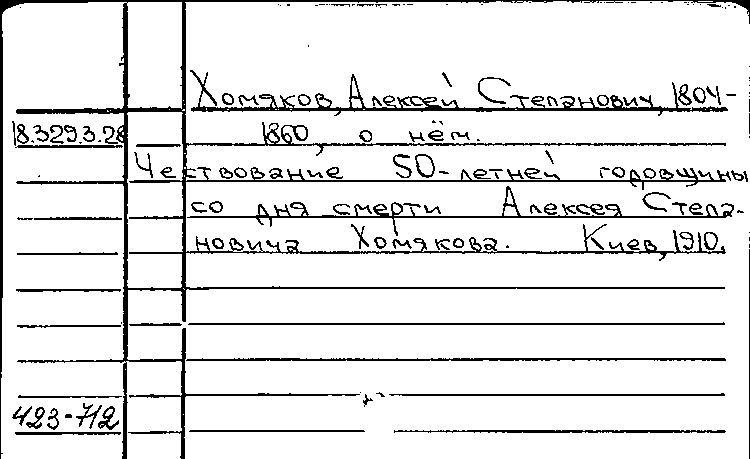 Хомяков, Алексей Степанович, 1804-
18.329.3.28
1860, о нём.
Чествование 50-летней годовщины
со дня смерти Алексея Степа-
новича Хомякова. Киев, 1910.
423-712